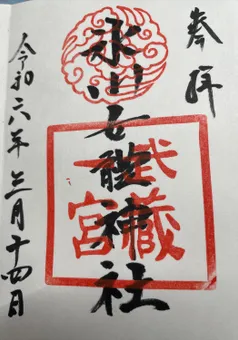 奉拝
氷川女體神社
武藏
一宮
令和六年三月十四日